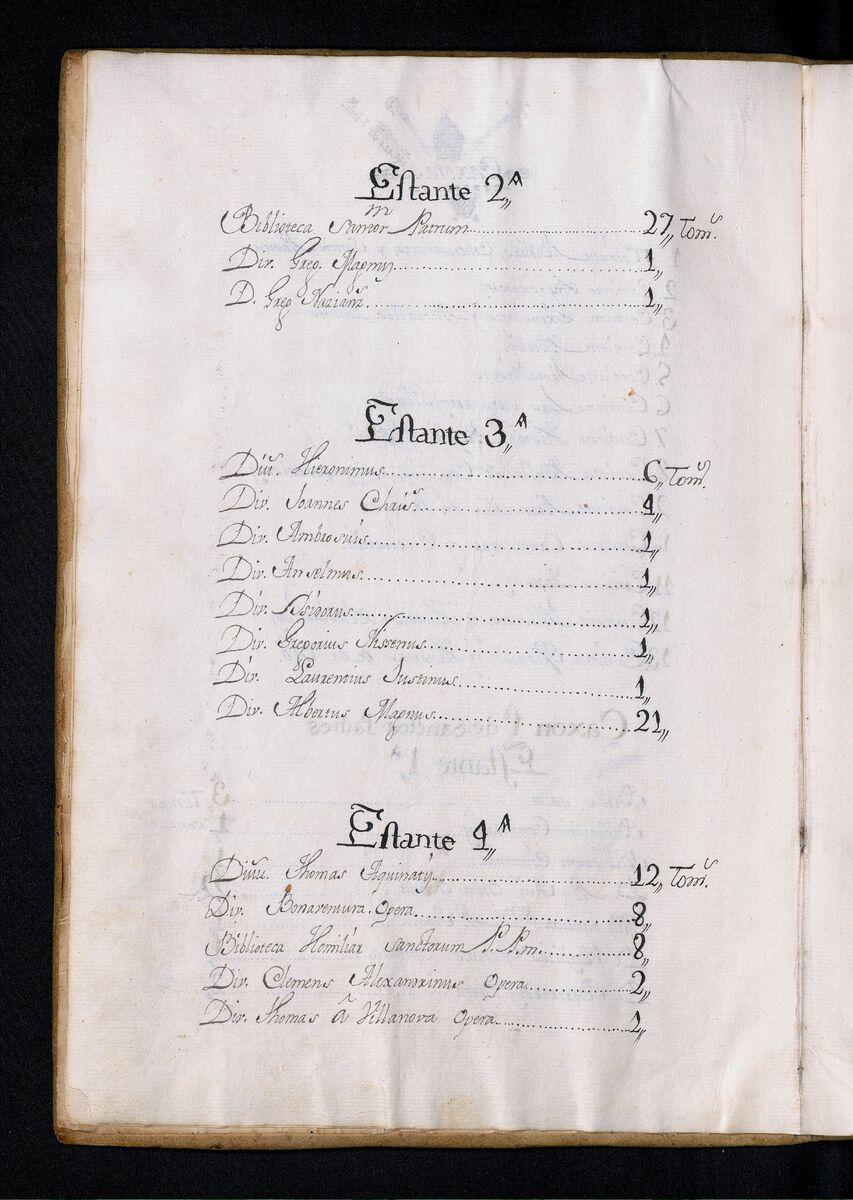 Estante 2,,ª
Biblioteca Sanctor.m Patrum 27,, Tom.s
Div. Greg. Magnus 1,,
D. Greg Nazianz. 1,,
Estante 3,,ª
Diu. Hieronimus 6,, Tom.s
Div. Joannes Chris.s 4,,
Div. Ambrosius 1,,
Div. Anselmus 1,,
Div. Isidorus 1,,
Div. Gregorius Nissenus 1,,
Div. Laurentius Justinus 1,,
Div. Albertus Magnus 21,,
Estante 4,,ª
Divu. Thomas Aquinatis 12,, Tom.s
Div. Bonaventura. Opera 8,,
Biblioteca Homiliar sanctorum P. P.m. 8,,
Div. Clemens Alexandrinus Opera 2,,
Div. Thomas â Villanova opera 1,,